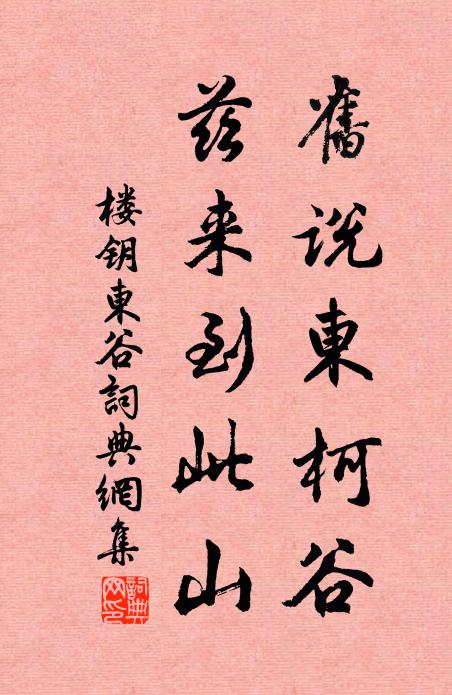 舊説東柯谷
兹来到此山
楼钥東谷詞典網集
詞典网印